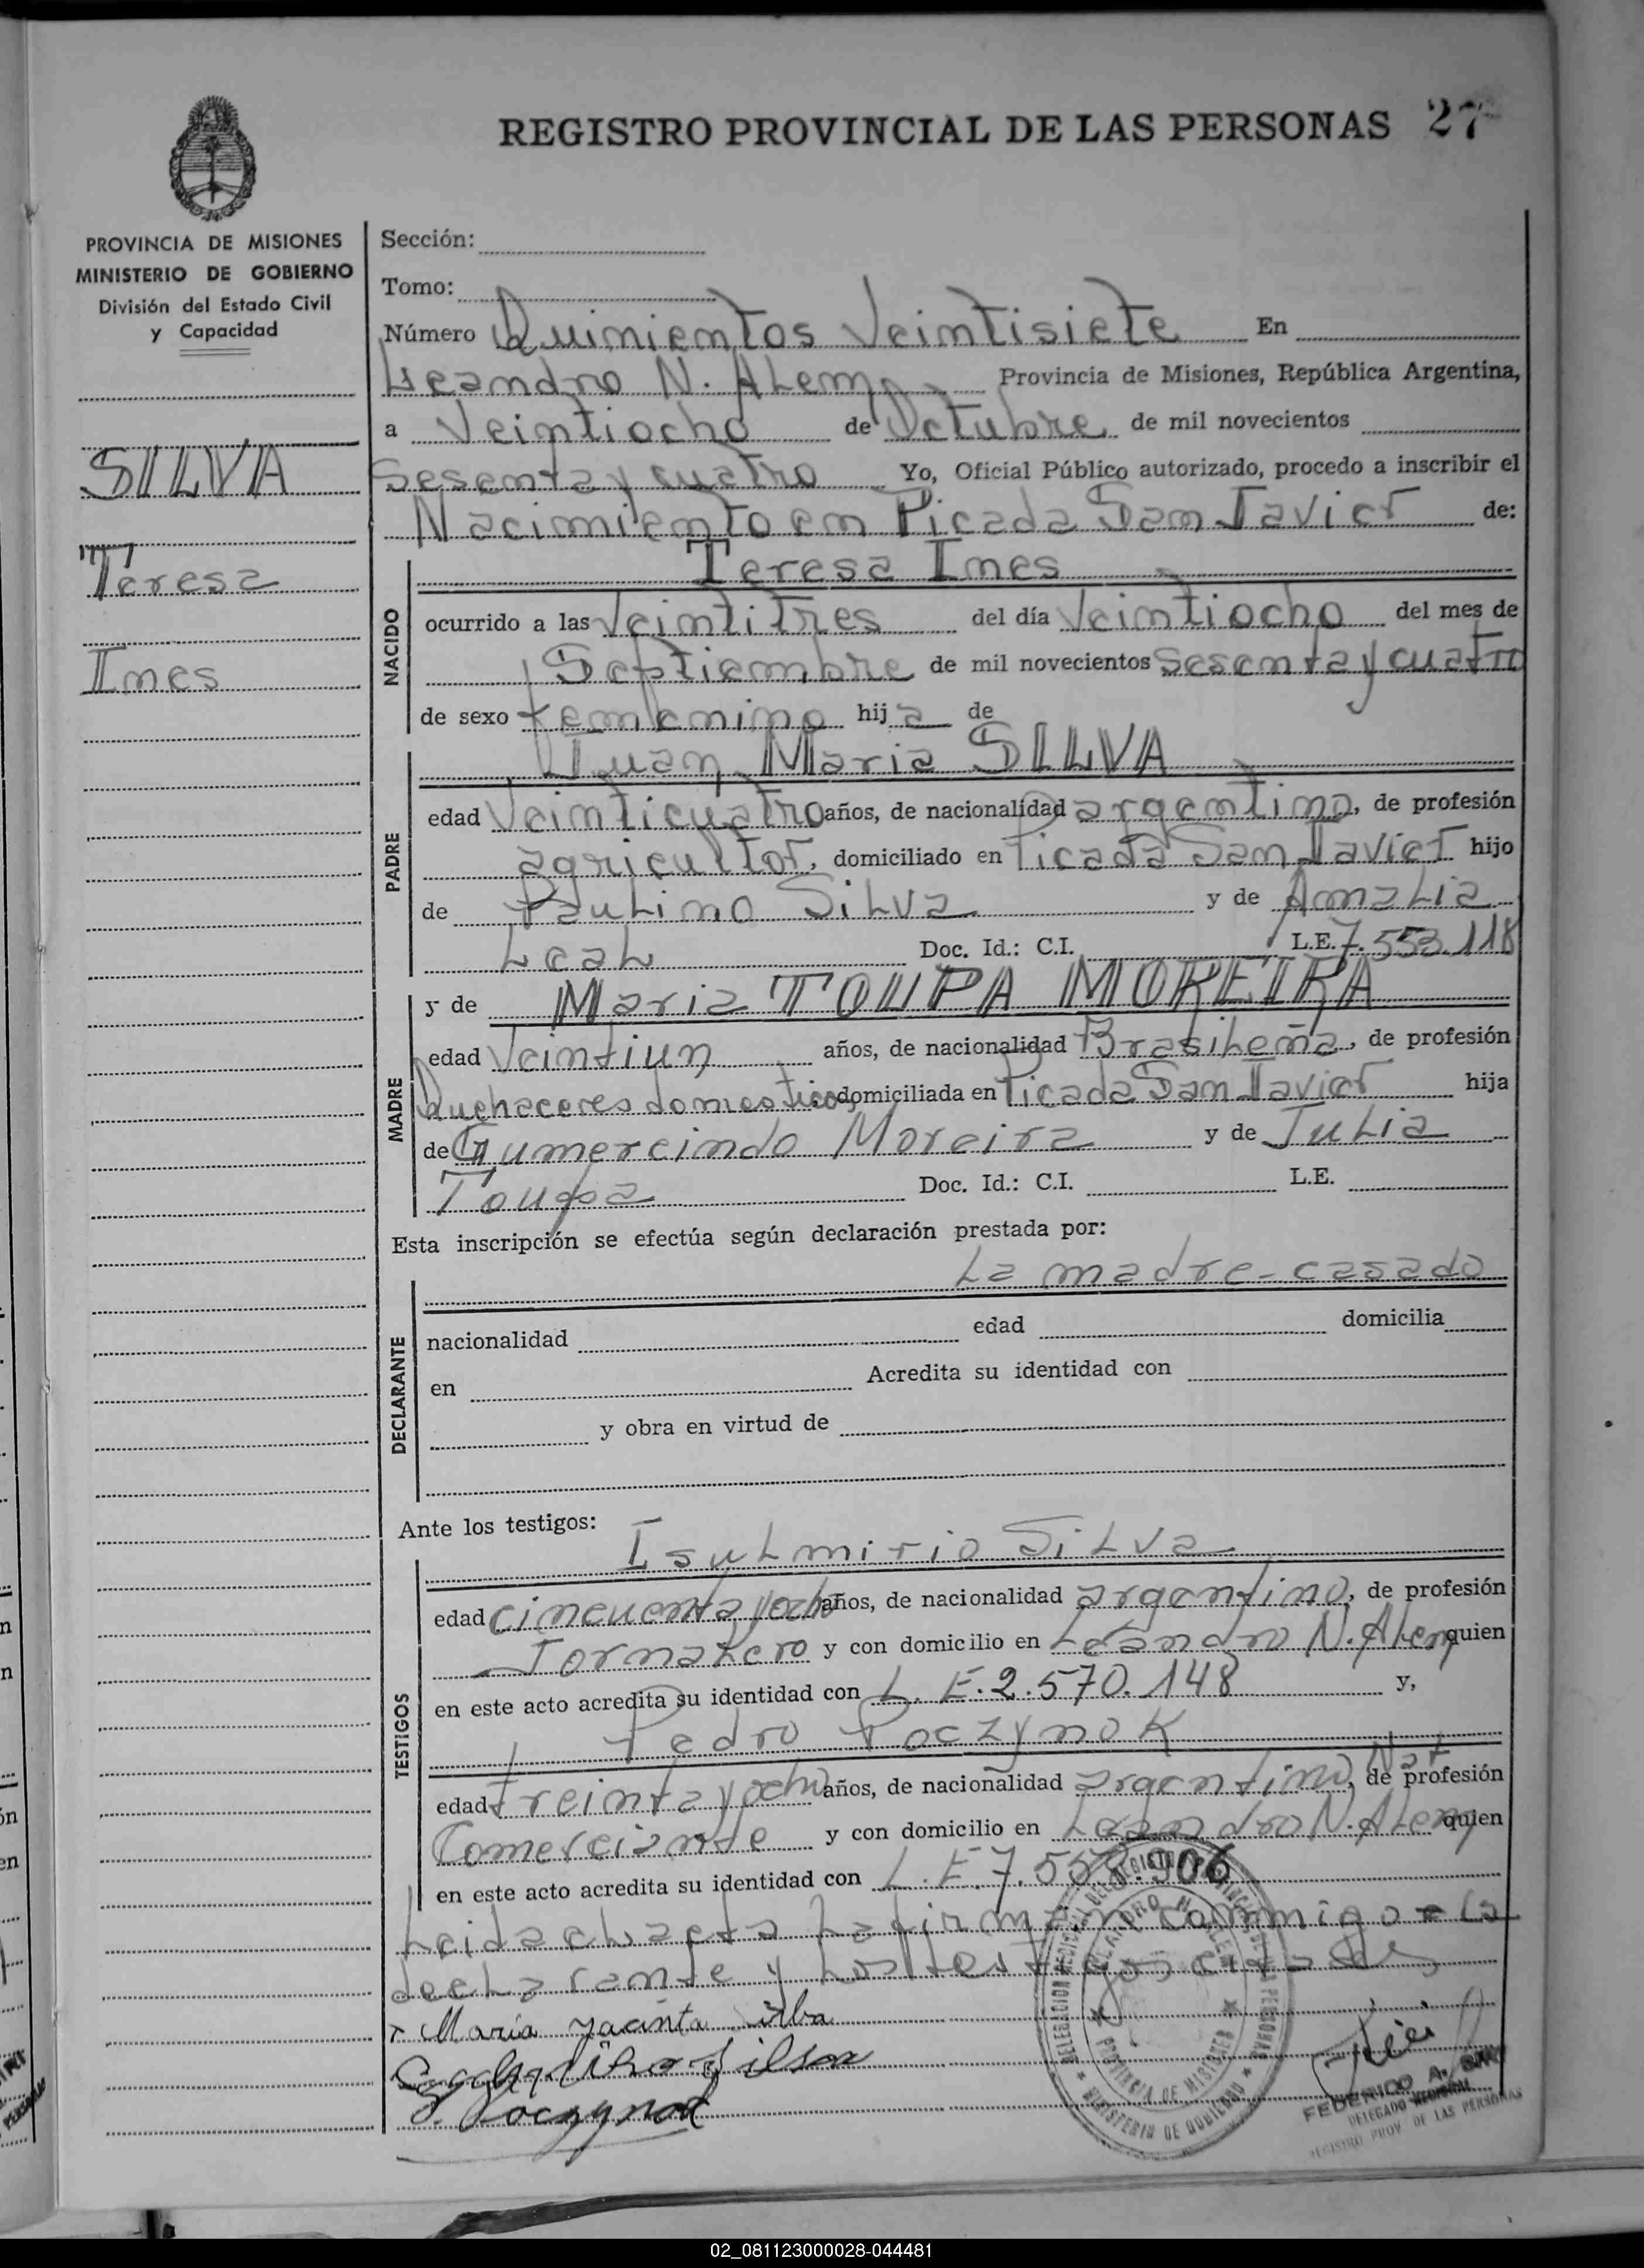 REGISTRO PROVINCIAL DE LAS PERSONAS 27
PROVINCIA DE MISIONES
MINISTERIO DE GOBIERNO
División del Estado Civil
y Capacidad
SILVA
Teresa
Ines
Sección:
Tomo:
Número Quinientos Veintisiete En
Leandro N. Alem, Provincia de Misiones, República Argentina,
a Veintiocho de Octubre de mil novecientos
Sesenta y cuatro Yo, Oficial Público autorizado, procedo a inscribir el
Nacimiento en Picada San Javier de:
NACIDO
Teresa Ines
ocurrido a las Veintitres del día Veintiocho del mes de
Septiembre de mil novecientos Sesenta y cuatro
de sexo femenino hija de
PADRE
Juan Maria SILVA
edad Veinticuatro años, de nacionalidad argentino, de profesión
agricultor, domiciliado en Picada San Javier hijo
de Paulino Silva y de Amalia
Leal Doc. Id.: C.I. L.E. 7.553.118
MADRE
y de Maria TOUPA MOREIRA
edad Veintiun años, de nacionalidad Brasileña, de profesión
Quehaceres domesticos, domiciliada en Picada San Javier hija
de Gumercindo Moreira y de Julia
Toupa Doc. Id.: C.I. L.E.
Esta inscripción se efectúa según declaración prestada por:
DECLARANTE
La madre-casado
nacionalidad edad domicilia
en Acredita su identidad con
y obra en virtud de
Ante los testigos:
TESTIGOS
Isulmirio Silva
edad cincuenta y ocho años, de nacionalidad argentino, de profesión
Jornalero y con domicilio en Leandro N. Alem quien
en este acto acredita su identidad con L. E. 2.570.148 y,
Pedro Poczynok
edad treinta y ocho años, de nacionalidad argentino, Nat de profesión
Comerciante y con domicilio en Leandro N. Alem quien
en este acto acredita su identidad con L. E. 7.558.906
Leida el acta la firman conmigo la
declarante y los testigos citados
x Maria Jacinta Silba
Silva
P. Poczynok
LEANDRO N. ALEM
PROVINCIA DE MISIONES
MINISTERIO DE GOBIERNO
FEDERICO A.
DELEGADO
REGISTRO PROV. DE LAS PERSONAS
02_081123000028-044481